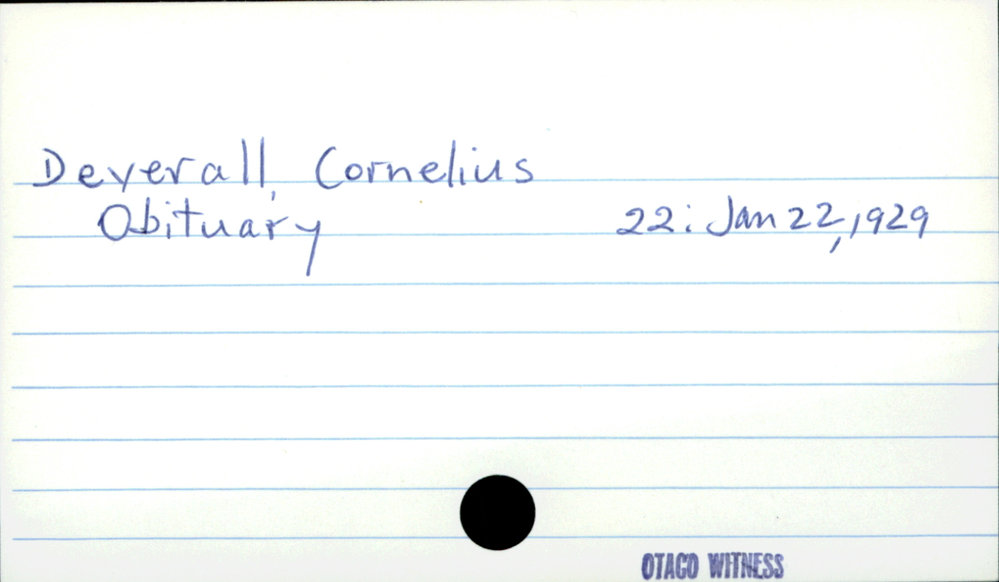 Deverall, Cornelius
Obituary 22: Jan 22, 1929
OTAGO WITNESS